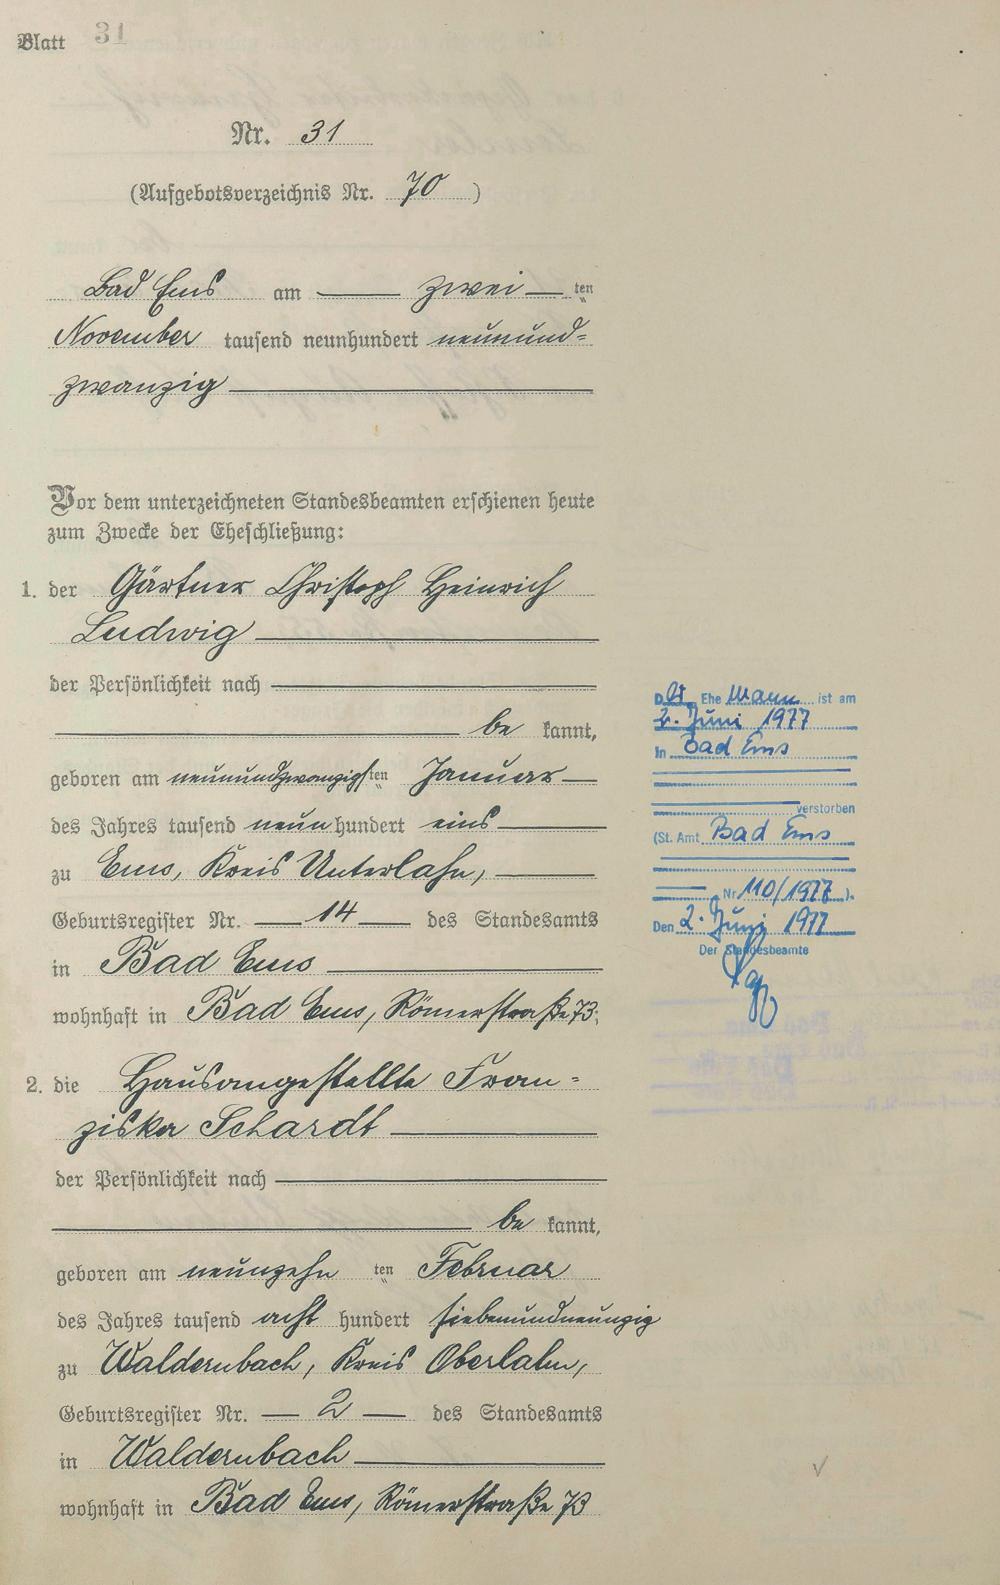 Blatt 31
Nr. 31
(Aufgebotsverzeichnis Nr. 70)
Bad Ems am zwei ten
November tausend neunhundert neunund-
zwanzig
Vor dem unterzeichneten Standesbeamten erschienen heute
zum Zwecke der Eheschließung:
1. der Gärtner Christoph Heinrich
Ludwig
der Persönlichkeit nach
be kannt,
geboren am neunundzwanzigsten Januar
des Jahres tausend neun hundert eins
zu Ems, Kreis Unterlahn,
Geburtsregister Nr. 14 des Standesamts
in Bad Ems
wohnhaft in Bad Ems, Römerstraße 73;
2. die Hausangestellte Fran-
ziska Schardt
der Persönlichkeit nach
be kannt,
geboren am neunzehn ten Februar
des Jahres tausend acht hundert siebenundneunzig
zu Waldernbach, Kreis Oberlahn,
Geburtsregister Nr. 2 des Standesamts
in Waldernbach
wohnhaft in Bad Ems, Römerstraße 73
Der Ehe Mann ist am
2. Juni 1977
in Bad Ems
verstorben
(St. Amt Bad Ems
Nr 110/1977).
Den 2. Juni 1977
Der Standesbeamte